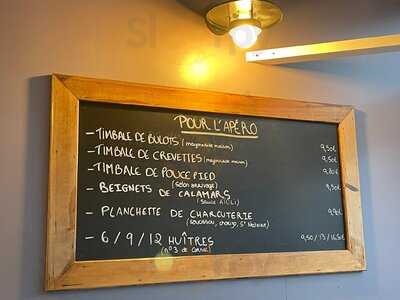 POUR L'APÉRO
- TIMBALE DE BULOTS (mayonnaise maison) 9,50€
- TIMBALE DE CREVETTES (mayonnaise maison) 9,50€
- TIMBALE DE POUCE PIED 9,80€
(selon arrivage)
- BEIGNETS DE CALAMARS 9,50€
(SAUCE AÏOLI)
- PLANCHETTE DE CHARCUTERIE 9,90€
(saucisson, chorizo, St Nectaire)
- 6 / 9 / 12 HUÎTRES 9,50 / 13 / 16,50€
(n°3 de